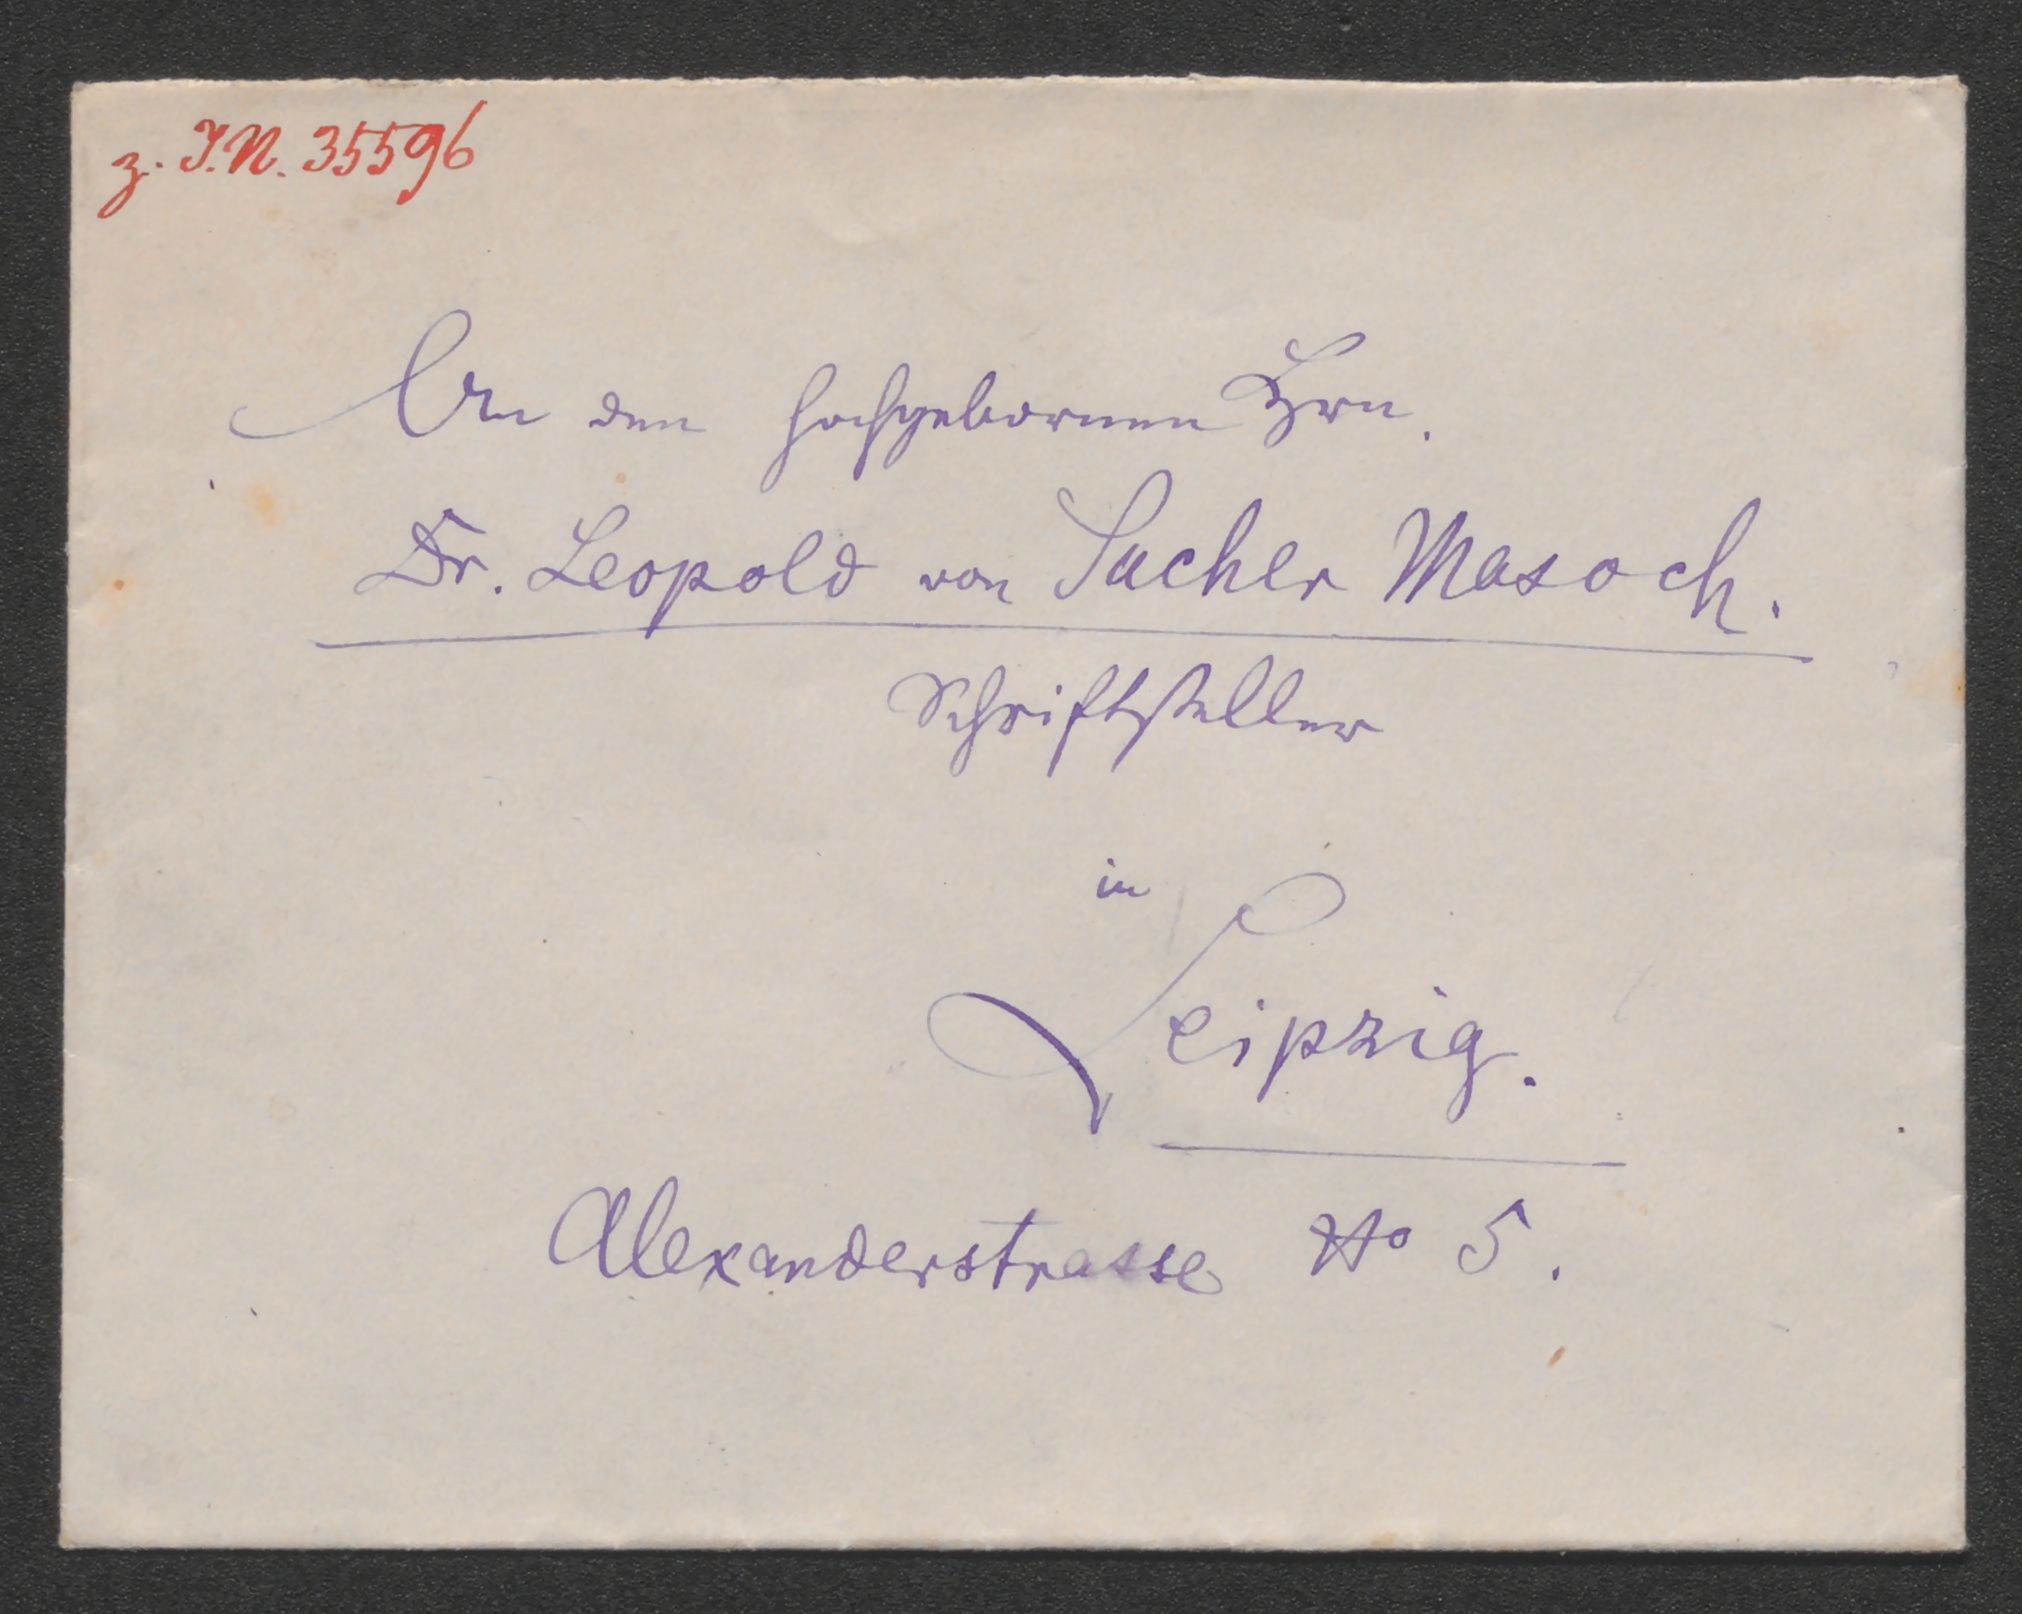 z. I.N. 35596
An den hochgebornen Hrn.
Dr. Leopold von Sacher Masoch.
Schriftsteller
in
Leipzig.
Alexanderstrasse No 5.